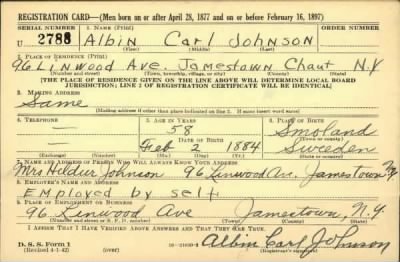 REGISTRATION CARD—(Men born on or after April 28, 1877 and on or before February 16, 1897)
SERIAL NUMBER 1. NAME (Print)
U 2788 Albin Carl Johnson
(First) (Middle) (Last)
2. PLACE OF RESIDENCE (Print)
96 Linwood Ave. Jamestown Chaut N.Y
(Number and street) (Town, township, village, or city) (County) (State)
[THE PLACE OF RESIDENCE GIVEN ON THE LINE ABOVE WILL DETERMINE LOCAL BOARD
JURISDICTION; LINE 2 OF REGISTRATION CERTIFICATE WILL BE IDENTICAL]
3. MAILING ADDRESS
Same
[Mailing address if other than place indicated on line 2. If same insert word same]
4. TELEPHONE 5. AGE IN YEARS 6. PLACE OF BIRTH
— 58 Smoland
DATE OF BIRTH (Town or county)
— Feb 2 1884 Sweden
(Exchange) (Number) (Mo.) (Day) (Yr.) (State or country)
7. NAME AND ADDRESS OF PERSON WHO WILL ALWAYS KNOW YOUR ADDRESS
Mrs Hildur Johnson 96 Linwood Ave. Jamestown NY
8. EMPLOYER'S NAME AND ADDRESS
Employed by self
9. PLACE OF EMPLOYMENT OR BUSINESS
96 Linwood Ave Jamestown, N.Y.
(Number and street or R. F. D. number) (Town) (County) (State)
I AFFIRM THAT I HAVE VERIFIED ABOVE ANSWERS AND THAT THEY ARE TRUE.
D. S. S. Form 1 Albin Carl Johnson
(Revised 4-1-42) (over) (Registrant's signature)